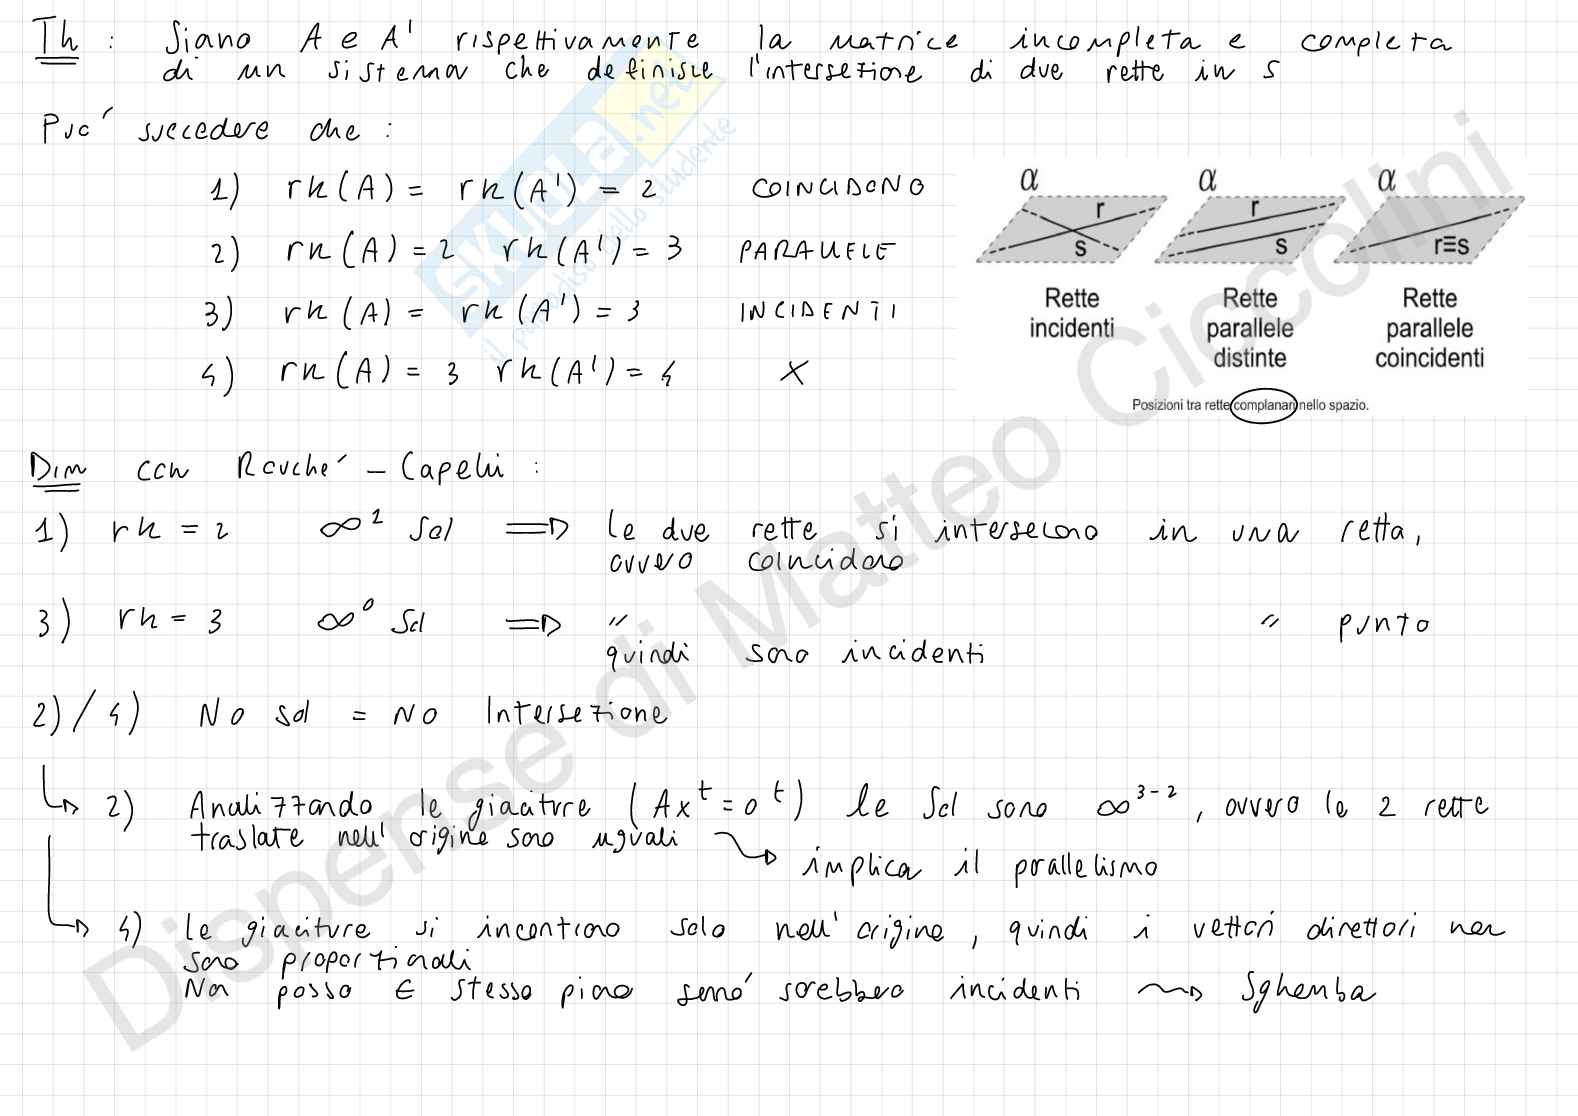 Th : Siano A e A' rispettivamente la matrice incompleta e completa
di un sistema che definisce l'intersezione di due rette in S
Puo' succedere che :
1) rk(A) = rk(A') = 2 COINCIDONO
2) rk(A) = 2 rk(A') = 3 PARALLELE
3) rk(A) = rk(A') = 3 INCIDENTI
4) rk(A) = 3 rk(A') = 4 X
α α α
r r
s s r≡s
Rette Rette Rette
incidenti parallele parallele
distinte coincidenti
Posizioni tra rette complanari nello spazio.
Dim con Rouché - Capelli :
1) rk = 2 ∞² Sol ⇒ le due rette si intersecano in una retta,
ovvero coincidono
3) rk = 3 ∞⁰ Sol ⇒ " " punto
quindi sono incidenti
2)/4) No sol = NO Intersezione
2) Analizzando le giaciture (Axᵗ = 0ᵗ) le Sol sono ∞³⁻², ovvero le 2 rette
traslate nell' origine sono uguali
implica il parallelismo
4) le giaciture si incontrano solo nell' origine, quindi i vettori direttori non
sono proporzionali
Non posso ∈ stesso piano sennó sarebbero incidenti Sghemba
Dispense di Matteo Ciccolini
SKUOLA.net
il paradiso dello studente